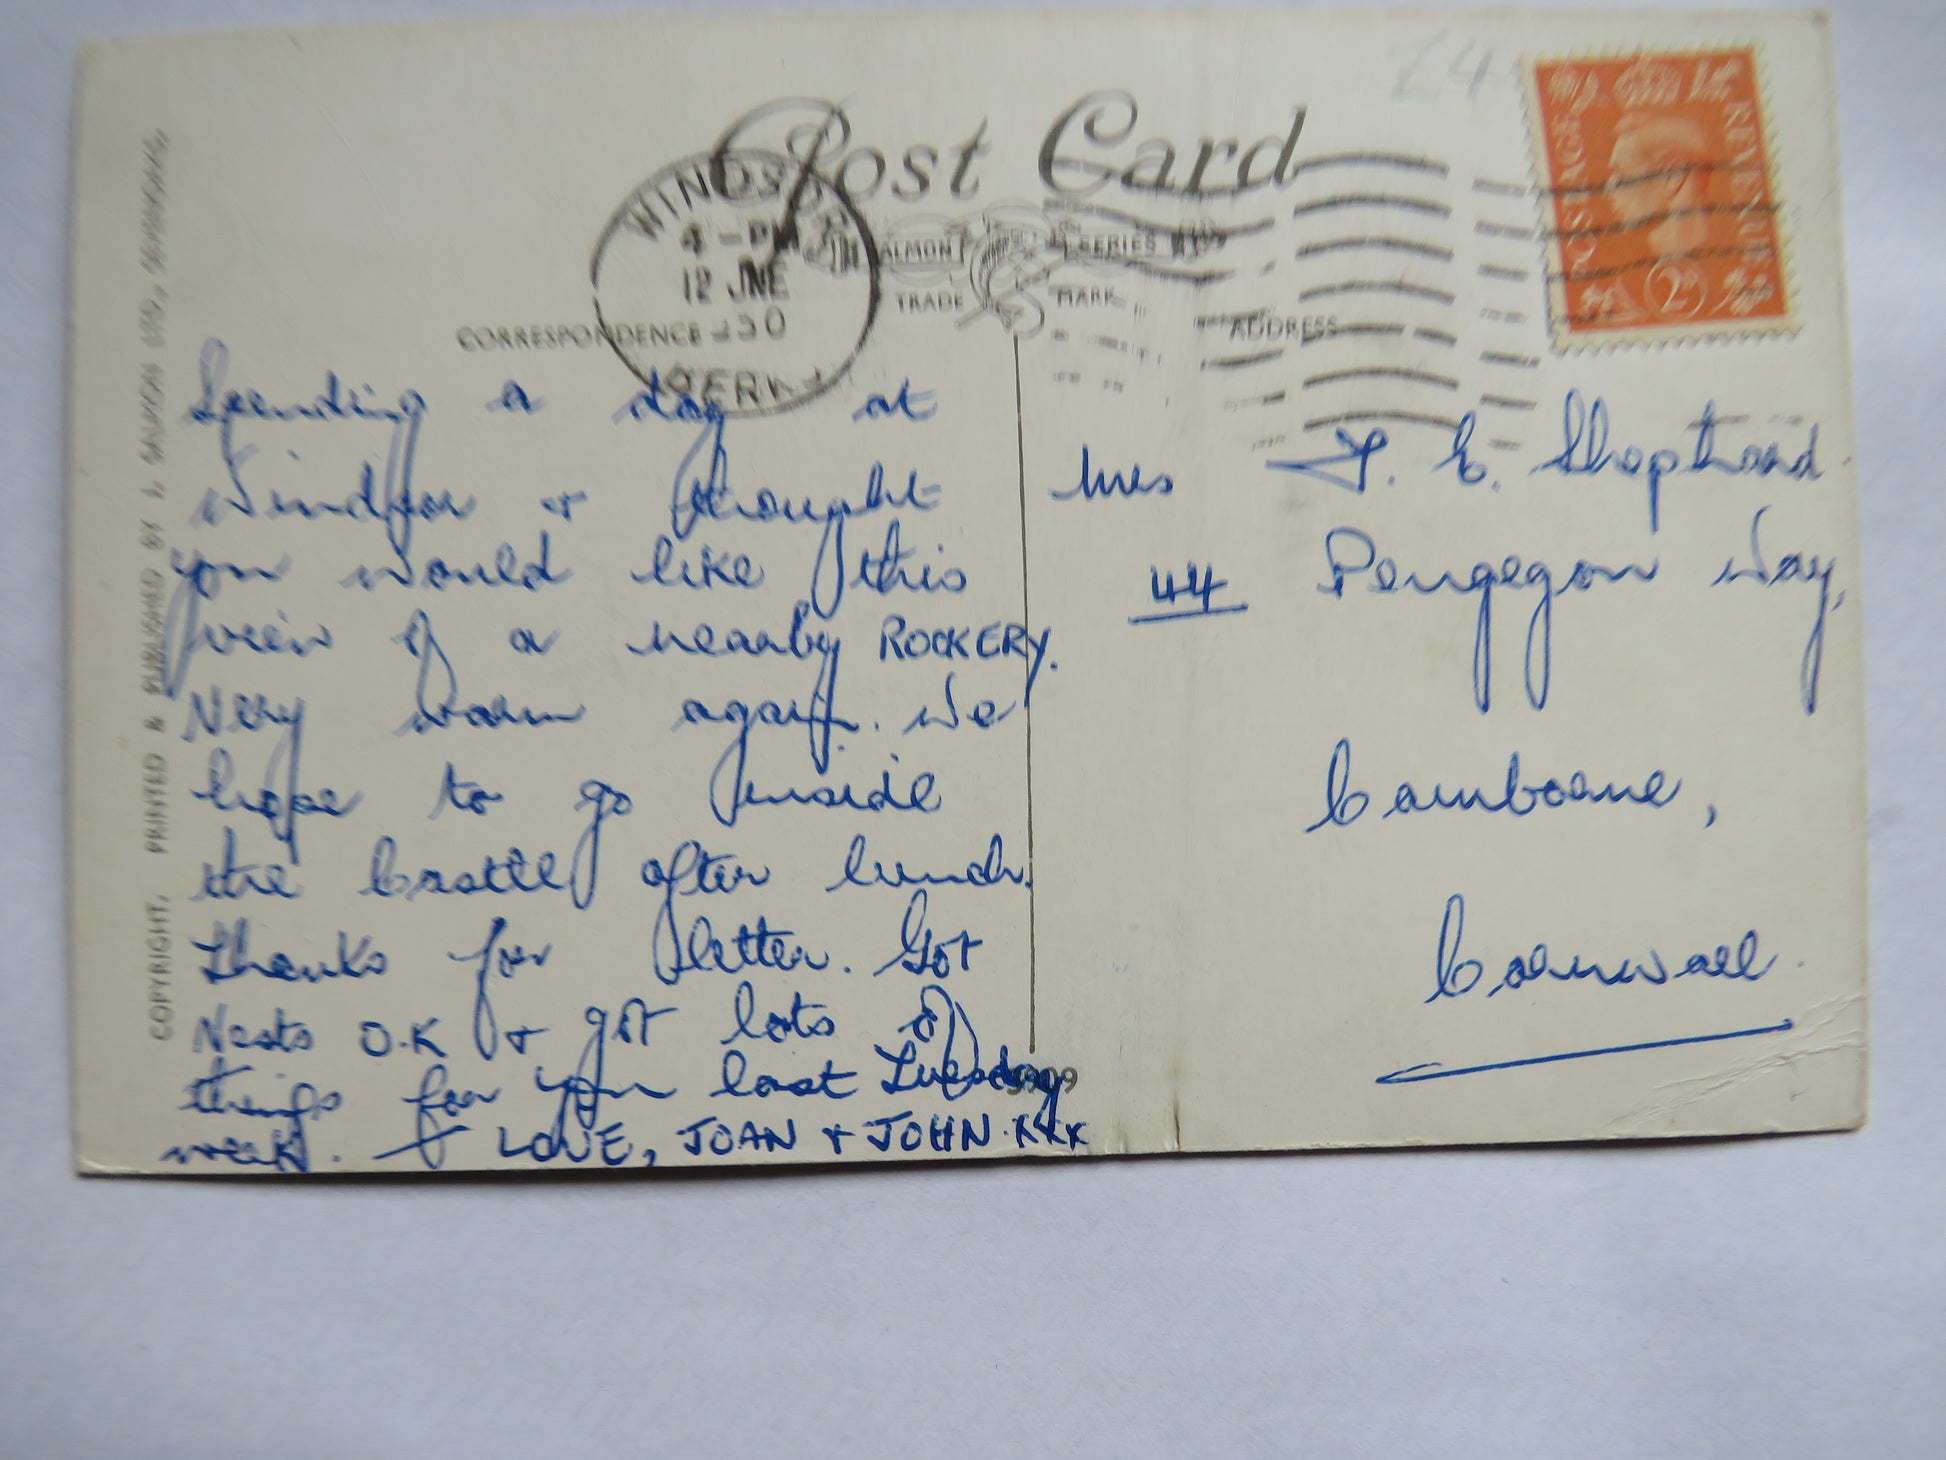 Post Card
WINDSOR
4 - PM
12 JNE
BERKS
SALMON SERIES
TRADE MARK
CORRESPONDENCE
ADDRESS
POSTAGE
REVENUE
2D
COPYRIGHT, PRINTED & PUBLISHED BY J. SALMON LTD., SEVENOAKS.
Spending a day at
Windsor + thought
you would like this
view of a nearby ROCKERY.
Very warm again. We
hope to go inside
the Castle after lunch.
Thanks for letter. Got
Vests O.K + got lots of
things for you last Tuesday
week. LOVE, JOAN + JOHN. xxx
Mrs T. E. Shopthoard
44 Pengegon Way,
Camborne,
Cornwall.